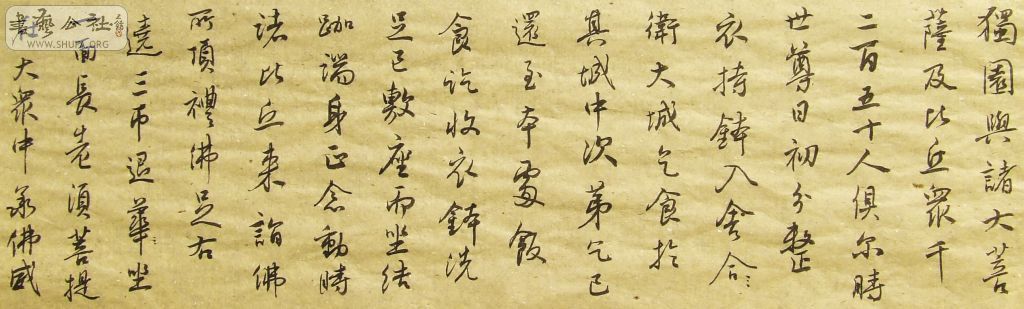 獨園與諸大菩
薩及比丘眾千
二百五十人俱尔時
世尊日初分整
衣持鉢入舍合
衛大城乞食於
其城中次第乞已
還至本處飯
食訖收衣鉢洗
足已敷座而坐結
跏端身正念動時
諸比丘来詣佛
所頂禮佛足右
遶三帀退華坐
一面長老須菩提
大眾中承佛威
書藝公社
WWW.SHUFA.ORG